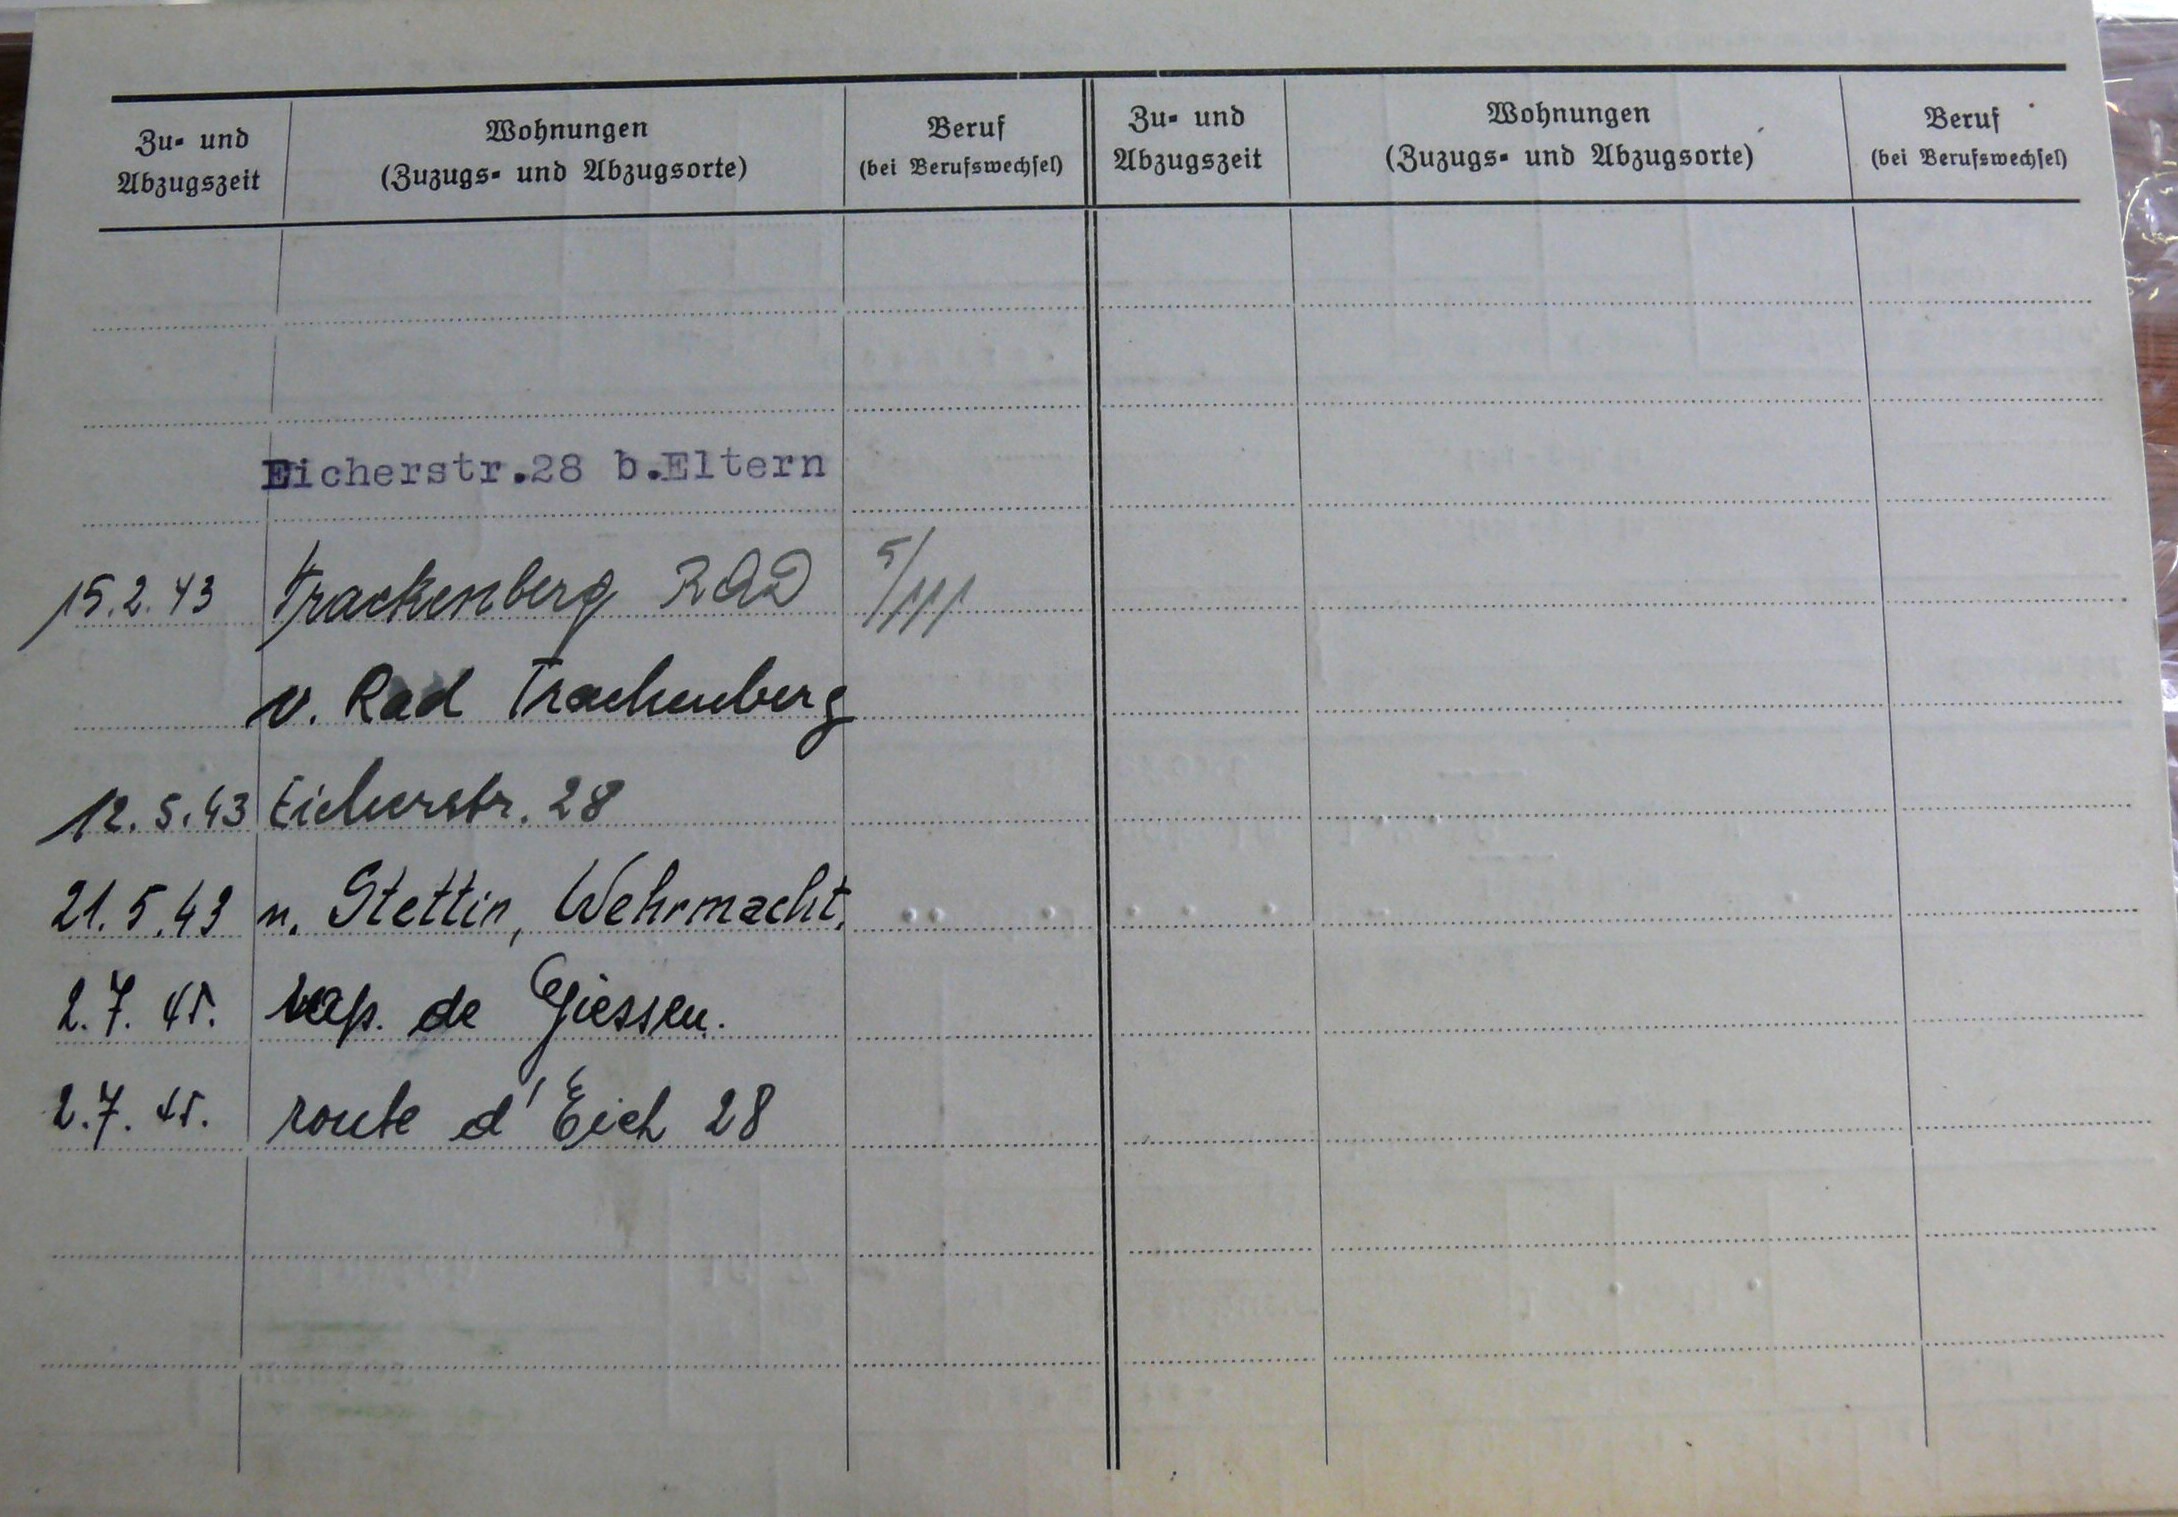 Zu- und Abzugszeit
Wohnungen
(Zuzugs- und Abzugsorte)
Beruf
(bei Berufswechsel)
Zu- und Abzugszeit
Wohnungen
(Zuzugs- und Abzugsorte)
Beruf
(bei Berufswechsel)
Eicherstr.28 b.Eltern
15.2.43 Trackenberg RAD 5/III
v. Rad Trachenberg
12.5.43 Eicherstr. 28
21.5.43 n. Stettin, Wehrmacht.
2.7.45. rap. de Giessen.
2.7.45. route d'Eich 28